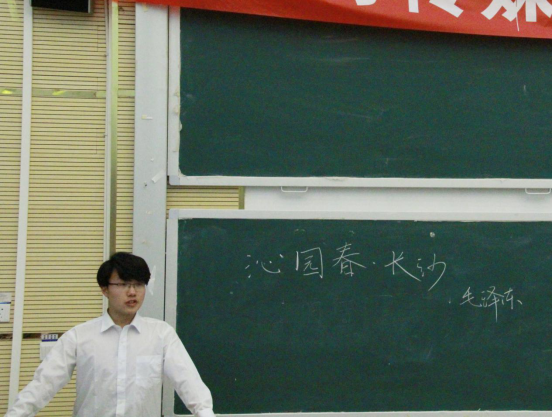 传媒
沁园春·长沙
毛泽东